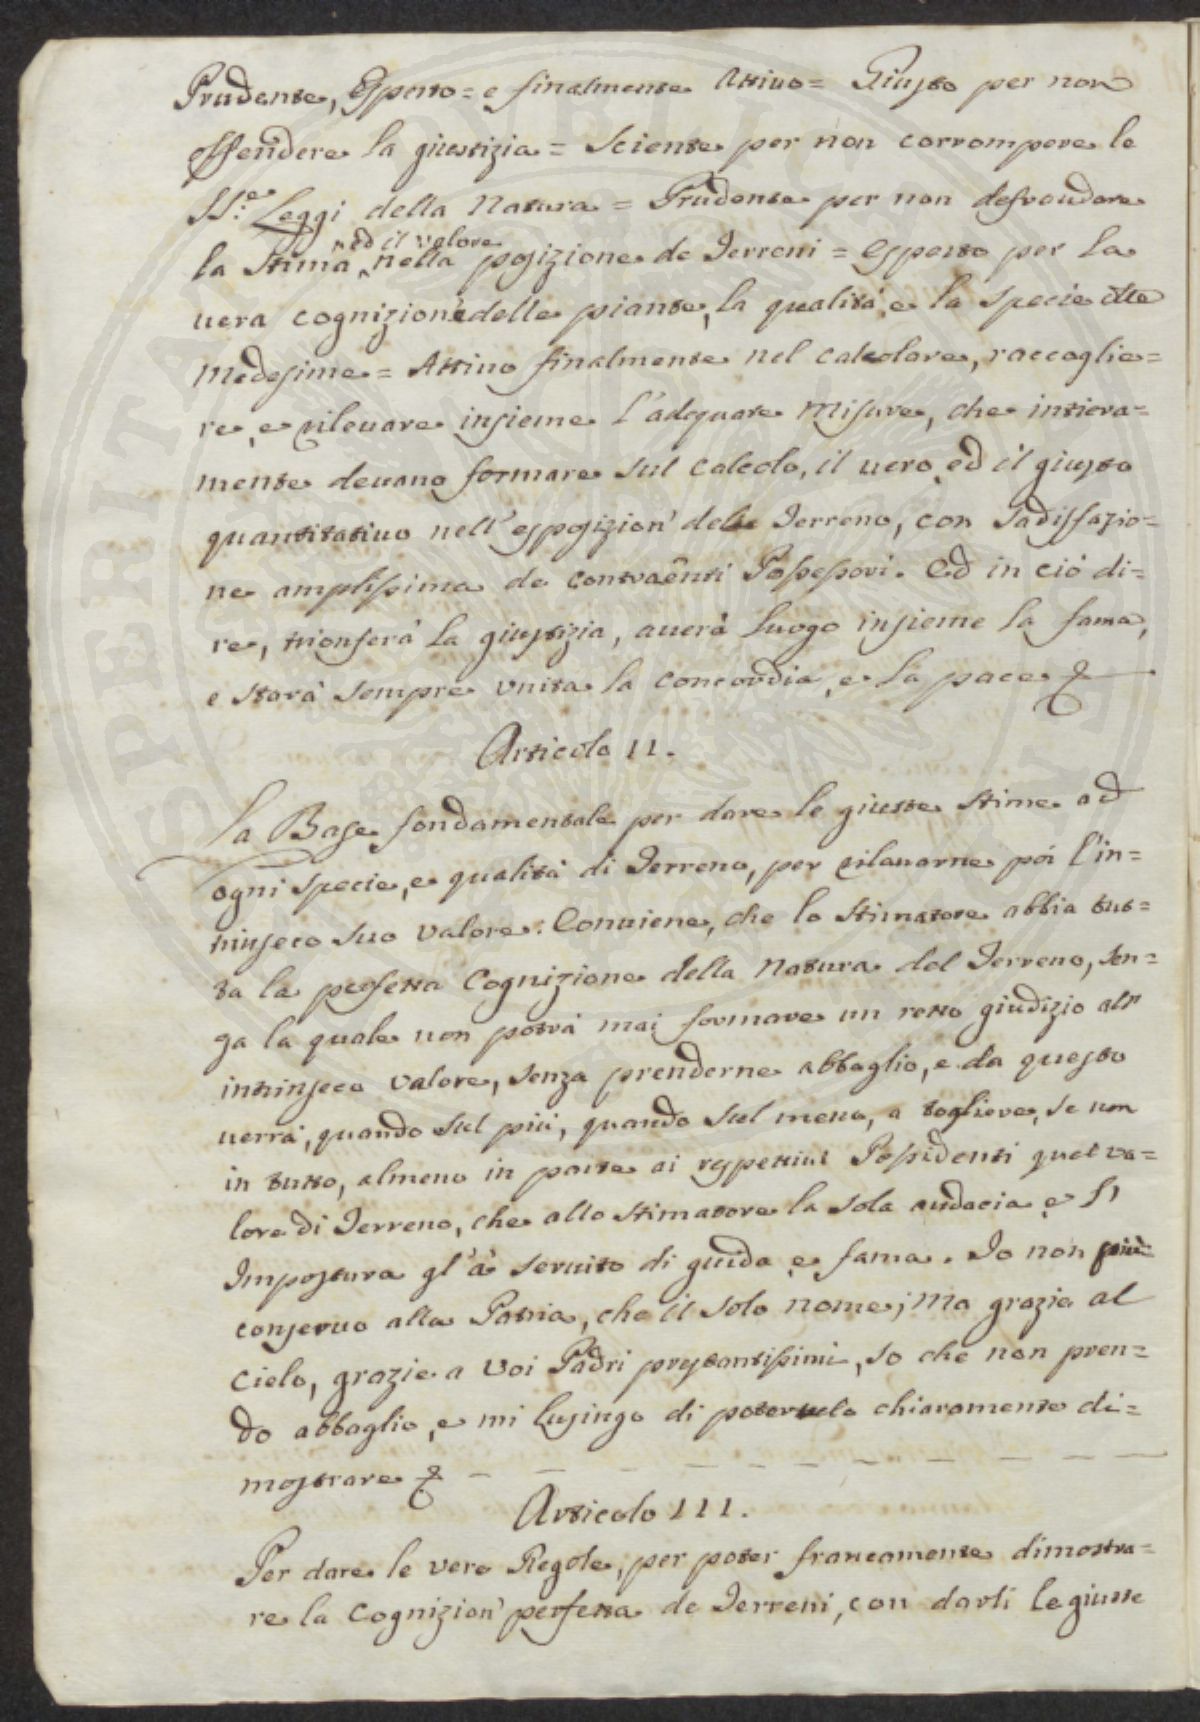 Prudente, Esperto = e finalmente Attivo = Giusto per non
offendere la giustizia = Sciente per non corrompere le
SS.e Leggi della Natura = Prudente per non defraudare
ed il valore
la Stima nella posizione de Terreni = Esperto per la
vera cognizione delle piante, la qualità, e la specie
medesime = Attivo finalmente nel calcolare, raccoglie=
re, e rilevare insieme l'adequate Misure, che intiera=
mente devano formare sul calcolo, il vero, ed il giusto
quantitativo nell'esposizion' del Terreno, con sadisfazio=
ne amplissima de contraenti Possessori. Ed in ciò di=
re, trionferà la giustizia, averà luogo insieme la fama,
e starà sempre unita la concordia, e la pace &
Articolo II.
La Base fondamentale per dare le giuste stime ad
ogni specie, e qualità di Terreno, per rilevarne poi l'in=
trinseco suo valore: Conviene, che lo Stimatore abbia tut=
ta la perfetta Cognizione della Natura del Terreno, sen=
za la quale non potrà mai formare un retto giudizio all'
intrinseco valore, senza prenderne abbaglio, e da questo
verrà, quando sul più, quando sul meno, a togliere, se non
in tutto, almeno in parte ai respettivi Possidenti quel va=
lore di Terreno, che allo stimatore la sola audacia, e l'
Impostura gl'à servito di guida, e fama. Io non più
conservo alla Patria, che il solo nome; Ma grazie al
Cielo, grazie a Voi Padri prestantissimi, so che non pren=
do abbaglio, e mi lusingo di potervelo chiaramente di=
mostrare &
Articolo III.
Per dare le vere Regole, per poter francamente dimostra=
re la Cognizion' perfetta de Terreni, con darli le giuste